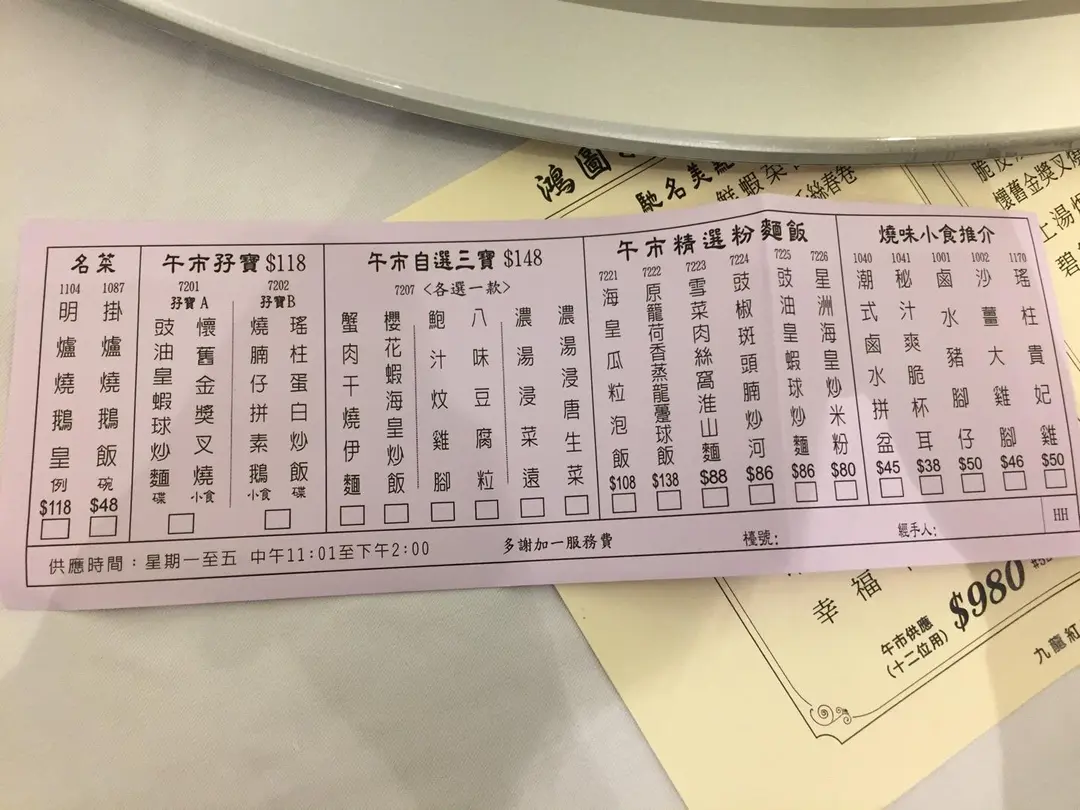 鴻圖
馳名美點
鮮蝦
絲春卷
懷舊金獎叉燒
上湯
碧
名菜
1104
明爐燒鵝皇
例
$118
1087
掛爐燒鵝飯
碗
$48
午市孖寶 $118
7201
孖寶 A
豉油皇蝦球炒麵
碟
懷舊金獎叉燒
小食
7202
孖寶B
燒腩仔拼素鵝
小食
瑤柱蛋白炒飯
碟
午市自選三寶 $148
7207 <各選一款>
蟹肉干燒伊麵
櫻花蝦海皇炒飯
鮑汁炆雞腳
八味豆腐粒
濃湯浸菜遠
濃湯浸唐生菜
午市精選粉麵飯
7221
海皇瓜粒泡飯
$108
7222
原籠荷香蒸龍躉球飯
$138
7223
雪菜肉絲窩淮山麵
$88
7224
豉椒斑頭腩炒河
$86
7225
豉油皇蝦球炒麵
$86
7226
星洲海皇炒米粉
$80
燒味小食推介
1040
潮式鹵水拼盆
$45
1041
秘汁爽脆杯耳
$38
1001
鹵水豬腳仔
$50
1002
沙薑大雞腳
$46
1170
瑤柱貴妃雞
$50
供應時間：星期一至五 中午11:01至下午2:00
多謝加一服務費
檯號：
經手人：
HH
幸福
午市供應
(十二位用)
$980
九龍紅